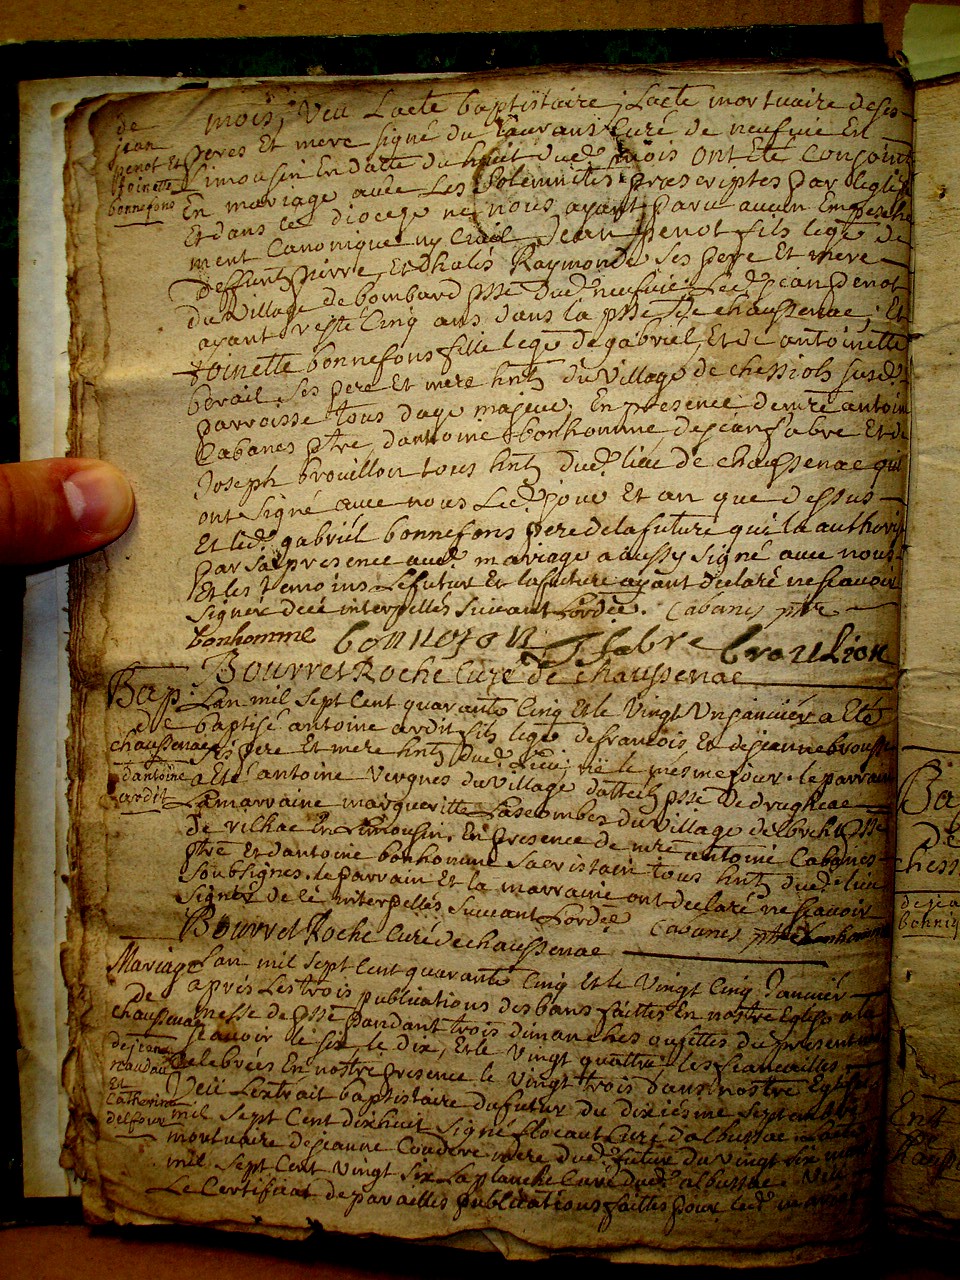 de
jean
penot Et
toinette
bonnefons
mois, Veu Lacte baptistaire, Lacte mortuaire de ses
peres Et mere signé du Curé de neufvie En
Limousin En datte du huit dud. mois ont Eté conjoint
En mariage avec Les solemnites prescriptes par leglise
Et dans ce diocese ne nous ayant paru aucun Empeche
ment Canonique ny Civil Jean penot fils lege de
deffunt pierre, Et d'halis Raymonde ses pere Et mere
du Village de bombard psse dud. neufvie Led. jean penot
ayant resté Cinq ans dans la psse de chaussenac, Et
toinette bonnefons fille lege de gabriel, Et de antoinette
berail ses pere Et mere hnts du Village de chessiols susd.
parroisse tous dage majeur, En presence de mre antoine
Cabanes ptre, dantoine bonhomme, de jean fabre Et de
Joseph brouillon tous hnts dud. lieu de chaussenac qui
ont signé avec nous Led. jour Et an que dessus
Et led. gabriel bonnefons pere de la future qui la authoris
par sa presence aud. mariage a aussy signé avec nous
Et les temoins Le futur Et la future ayant declaré ne scavoir
signer de ce interpellés suivant Lordce. Cabanes ptre
bonhomme bonnofon J fabre broulion
Bourret Roche Curé de chaussenac
Bap:
de
chaussenac
dantoine
ardit
Lan mil sept Cent quarante Cinq Et le Vingt Un janvier a Eté
baptisé antoine ardit fils lege de francois, Et de jeanne brousse
ses pere Et mere hnts dud. Lieu, né le mesme jour. le parrain
a Eté antoine Vergnes du Village datteils psse de drugheac
La marraine margueritte Lascombes du Village delbreil psse
de vilhac En Limousin. En presence de mre antoine Cabanes
ptre Et dantoine bonhomme sacristain tous hnts dud. lieu
soubsignes. le parrain Et la marraine ont declaré ne scavoir
signer de ce interpellés suivant Lordce Cabanes ptre bonhomme
Bourret Roche Curé de chaussenac
Mariage
de
chaussenac
de jean
Et
Catherine
delfour
Lan mil sept Cent quarante Cinq Et le Vingt Cinq Janvier
apres Les trois publications des bans faittes En nostre Eglise a la
messe de psse pandant trois dimanches quelles du present
scavoir le six, le dix, Et le Vingt quattre les fiancailles
Celebrées En nostre presence le Vingt trois dans nostre Eglise
Veü Lextrait baptistaire du futur du dixiesme septembre
mil sept Cent dixhuit signé flocaut Curé dalbussac
mortuaire de jeanne Couderc mere dud. futur du Vingt six
mil sept Cent Vingt six Laplanche Curé dud. albussac
Le Certificat de pareilles publications faittes pour led.